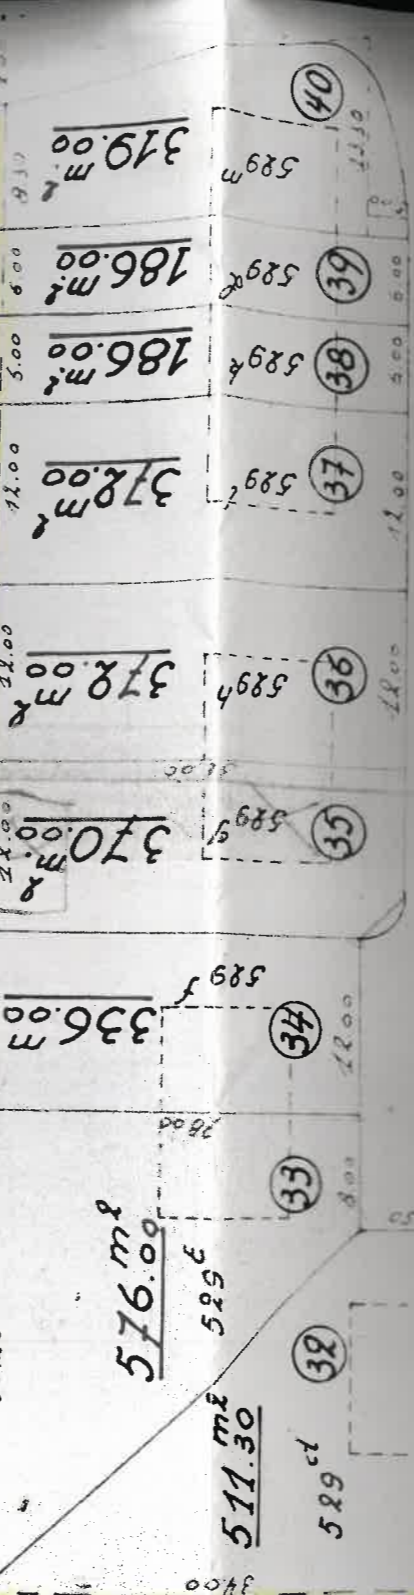 40
319.00 m²
529 m
13.50
9.50
39
186.00 m²
529 l
6.00
6.00
38
186.00 m²
529 k
6.00
6.00
37
372.00 m²
529 i
12.00
12.00
36
372.00 m²
529 h
12.00
12.00
31.00
35
370.00 m²
529 g
12.00
34
336.00 m
529 f
12.00
28.00
33
8.00
576.00 m²
529 e
32
511.30 m²
529 d
34.00